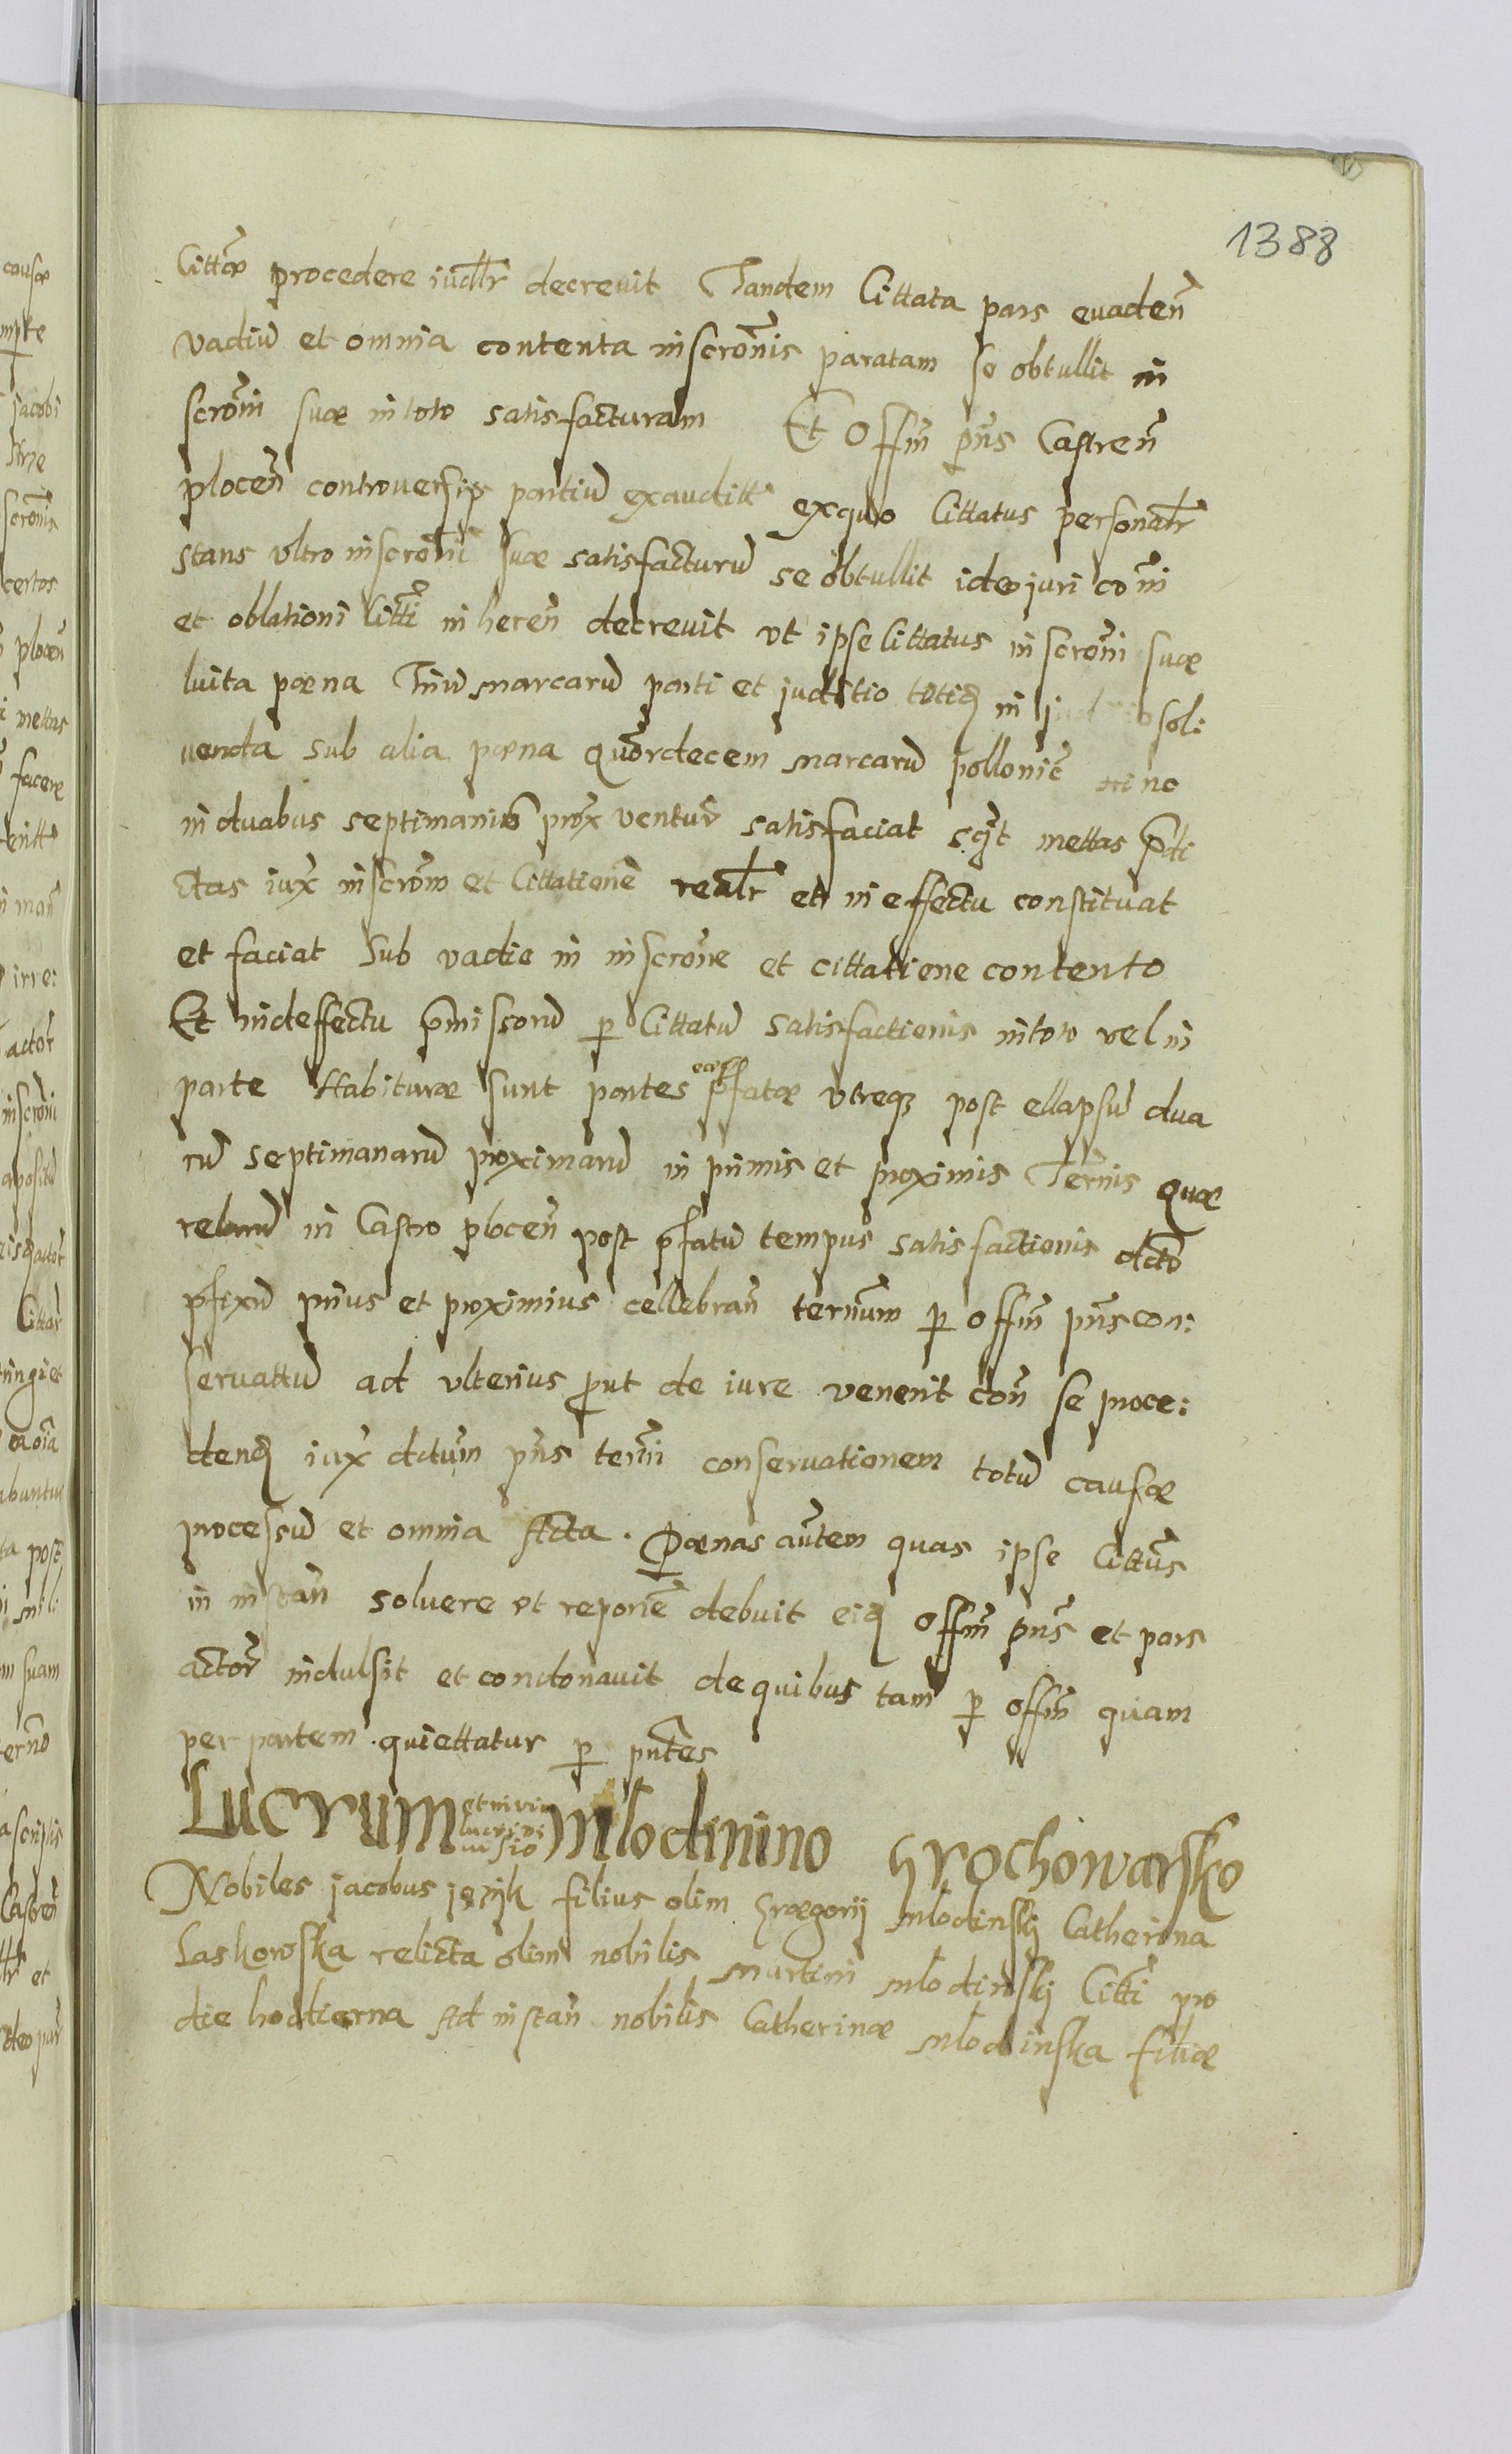 1388
Cittae procedere iudltr decrevit Tandem Cittata pars evaden
vadiu et omnia contenta inscronis paratam se obtullit in
scroni suae in toto satisfacturam Et Offm pns Castren
plocen controversys partiu exauditt exquo Cittatus personalr
stans ultro inscroni suae satisfacturu se obtullit ideo iuri coni
et oblationi Citti in heren decrevit ut ipse Cittatus inscroni suae
luita paena Triu marcaru parti et juditio totid in juditio sol:
venda sub alia paena quordecem marcaru pollonic
in duabus septimanis prox ventur satisfaciat sqt mettas pdi
ctas iux inscrom et Cittatione realr et in effectu constituat
et faciat sub vadio in inscrone et cittatione contento
Et indeffectu pmissoru p Cittatu satisfactionis in toto vel in
parte Habiturae sunt partes pfatae utreq post ellapsu dua
ru septimanaru proximaru in primis et proximis Ternis quae
relaru in Castro plocen post pfatu tempus satisfactionis dicto
pfixu prius et proximius cellebran ternum p offm pns con:
servattu ad ulterius put de iure venerit con se proce:
dend iux dctum pns terni conservationem totu causae
processu et omnia Acta. Paenas autem quas ipse Cittus
in instan solvere et reponè debuit eid offm pns et pars
actor indulsit et condonavit de quibus tam p offm quam
per partem quiettatur p pntes
Lucrum et in vim lucri di missio Mlodinino Grochowarsko
Nobiles jacobus filius olim Graegorii Mlodinskj Catherina
Laskowska relicta olim nobilis Martini Mlodinskj Citti pro
die hodierna Ad instan nobilis Catherinae Mlodinska filiae